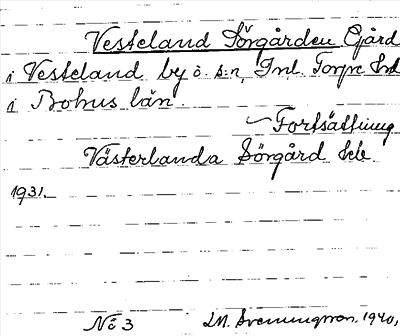 Vesteland Sörgården Gård
i Vesteland by o. s:n, Inl. Torpe Hd
i Bohus län.
Fortsättning
Västerlanda Sörgård Heb.
1931.
No 3 J.M. Svenungsson. 1940.